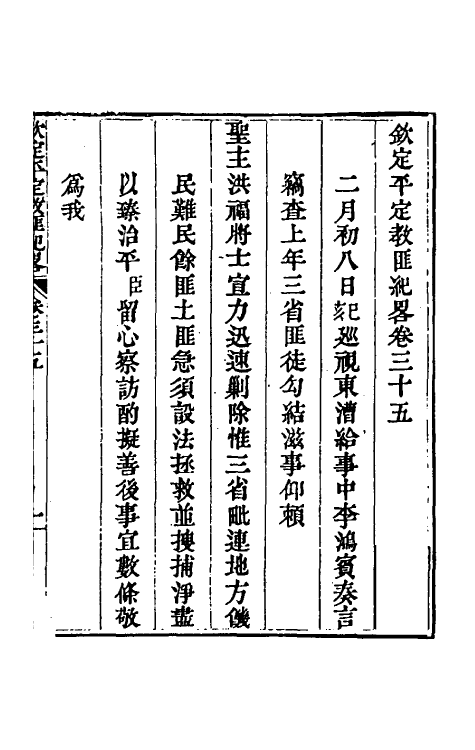 欽定平定教匪紀畧卷三十五
二月初八日己巳巡視東漕給事中李鴻賓奏言
竊查上年三省匪徒勾結滋事仰賴
聖主洪福將士宣力迅速剿除惟三省毗連地方饑
民難民餘匪土匪急須設法拯救並搜捕淨盡
以臻治平臣留心察訪酌擬善後事宜數條敬
爲我
欽定平定教匪紀畧 卷三十五 一